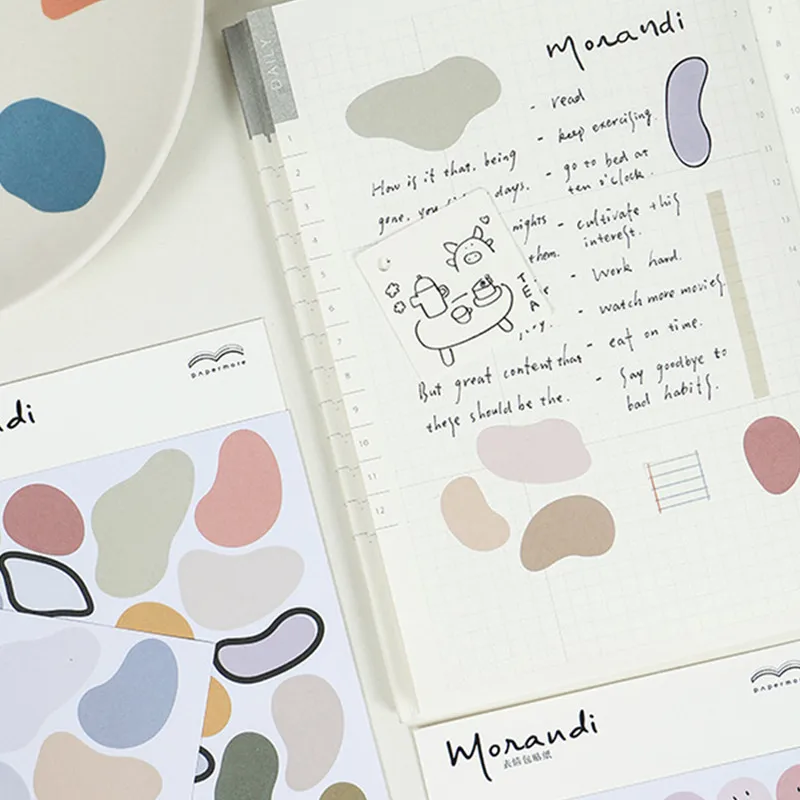 DAILY
Morandi
- read
- keep exercising.
How is it that, being
- go to bed at
ten o'clock.
gone, you days.
nights
- cultivate this
interest.
them.
TEA
- Work hard.
- watch more movies.
- eat on time.
But great content that
- Say goodbye to
bad habits.
these should be the.
1
2
3
4
5
6
7
8
9
10
11
12
7
9
10
11
12
13
14
papermore
ndi
papermore
Morandi
表情包贴纸